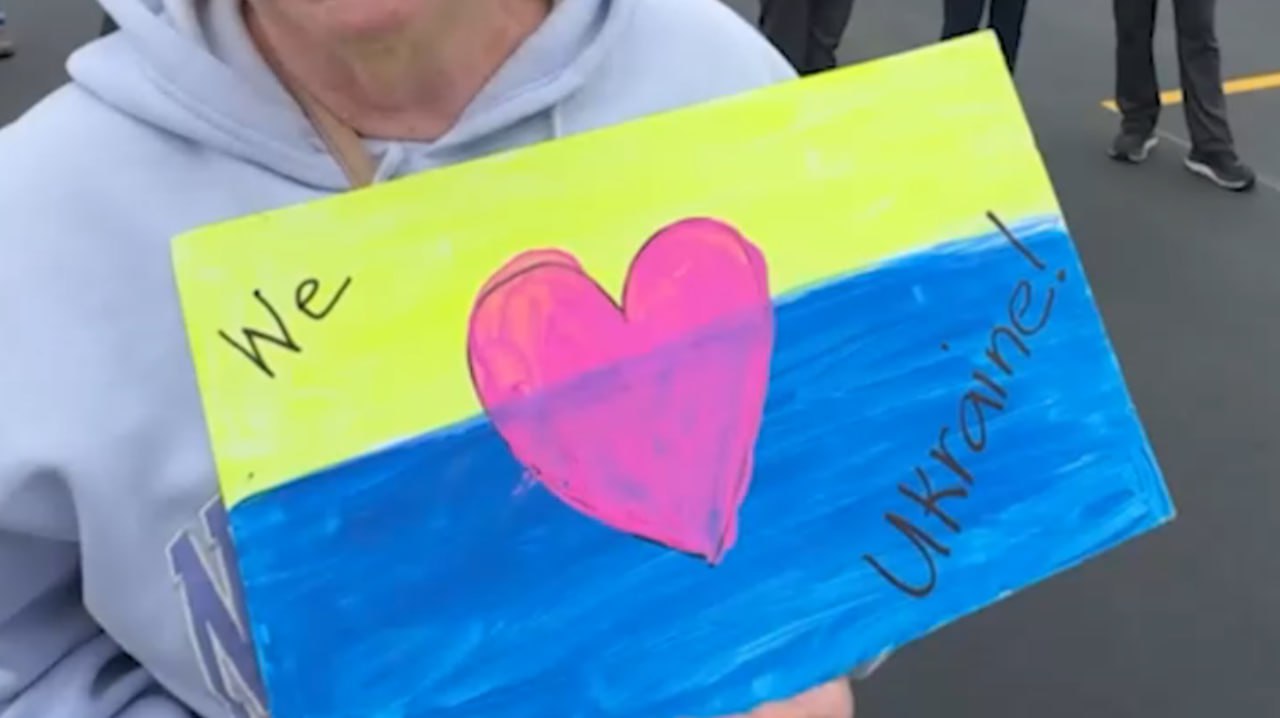 We
Ukraine!